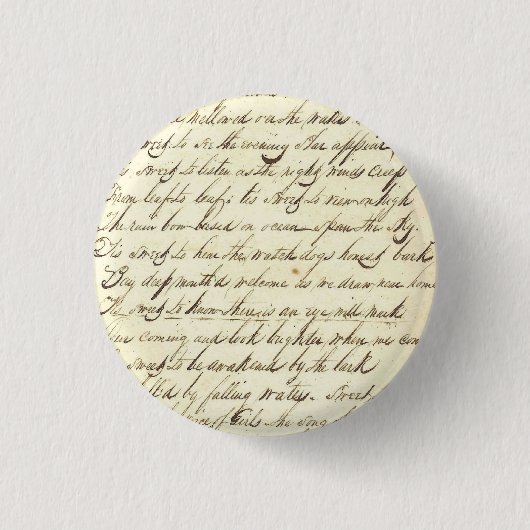 mellowed o'er the waters
sweet to see the evening star appear,
sweet to listen as the night winds creep
From leaf to leaf: tis sweet to view on high
The rain bow based on ocean span the sky.
Tis sweet to hear the watch dogs honest bark
Bay deep mouth'd welcome as we draw near home
Tis sweet to know there is an eye will mark
Our coming and look brighter when we com
sweet to be awakened by the lark
ll'd by falling waters. Sweet
voice of Girls the song